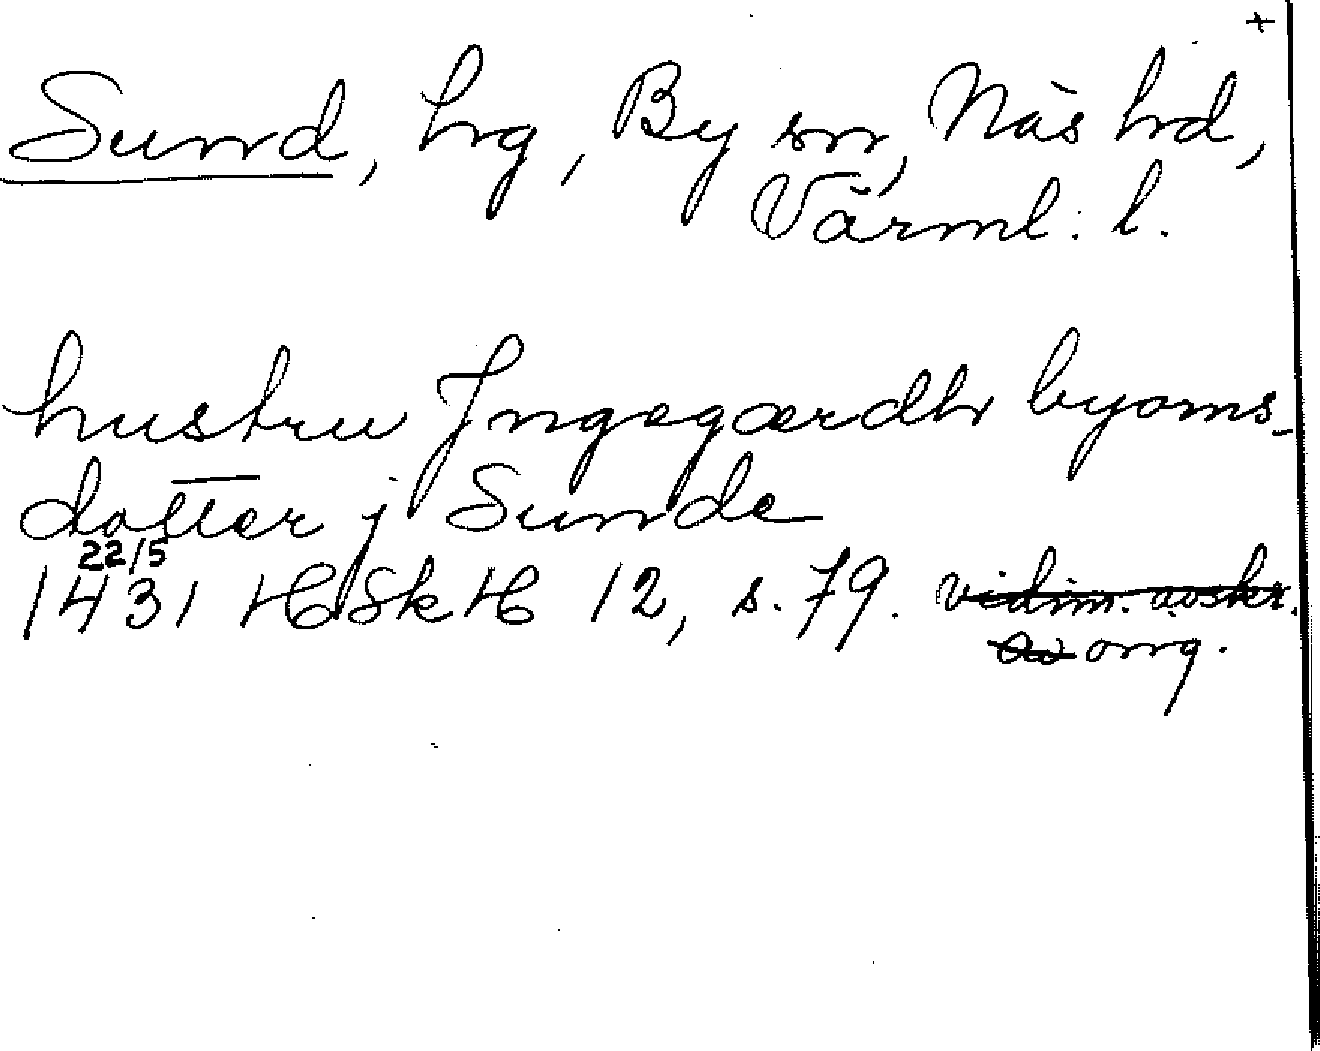 +
Sund, hg, By sn, Näs hd,
Värml. l.
hustru Jngegærdh byorns-
dotter j Sunde
22/5
1431 HSkH 12, s. 79. vidim. avskr.
av orig.